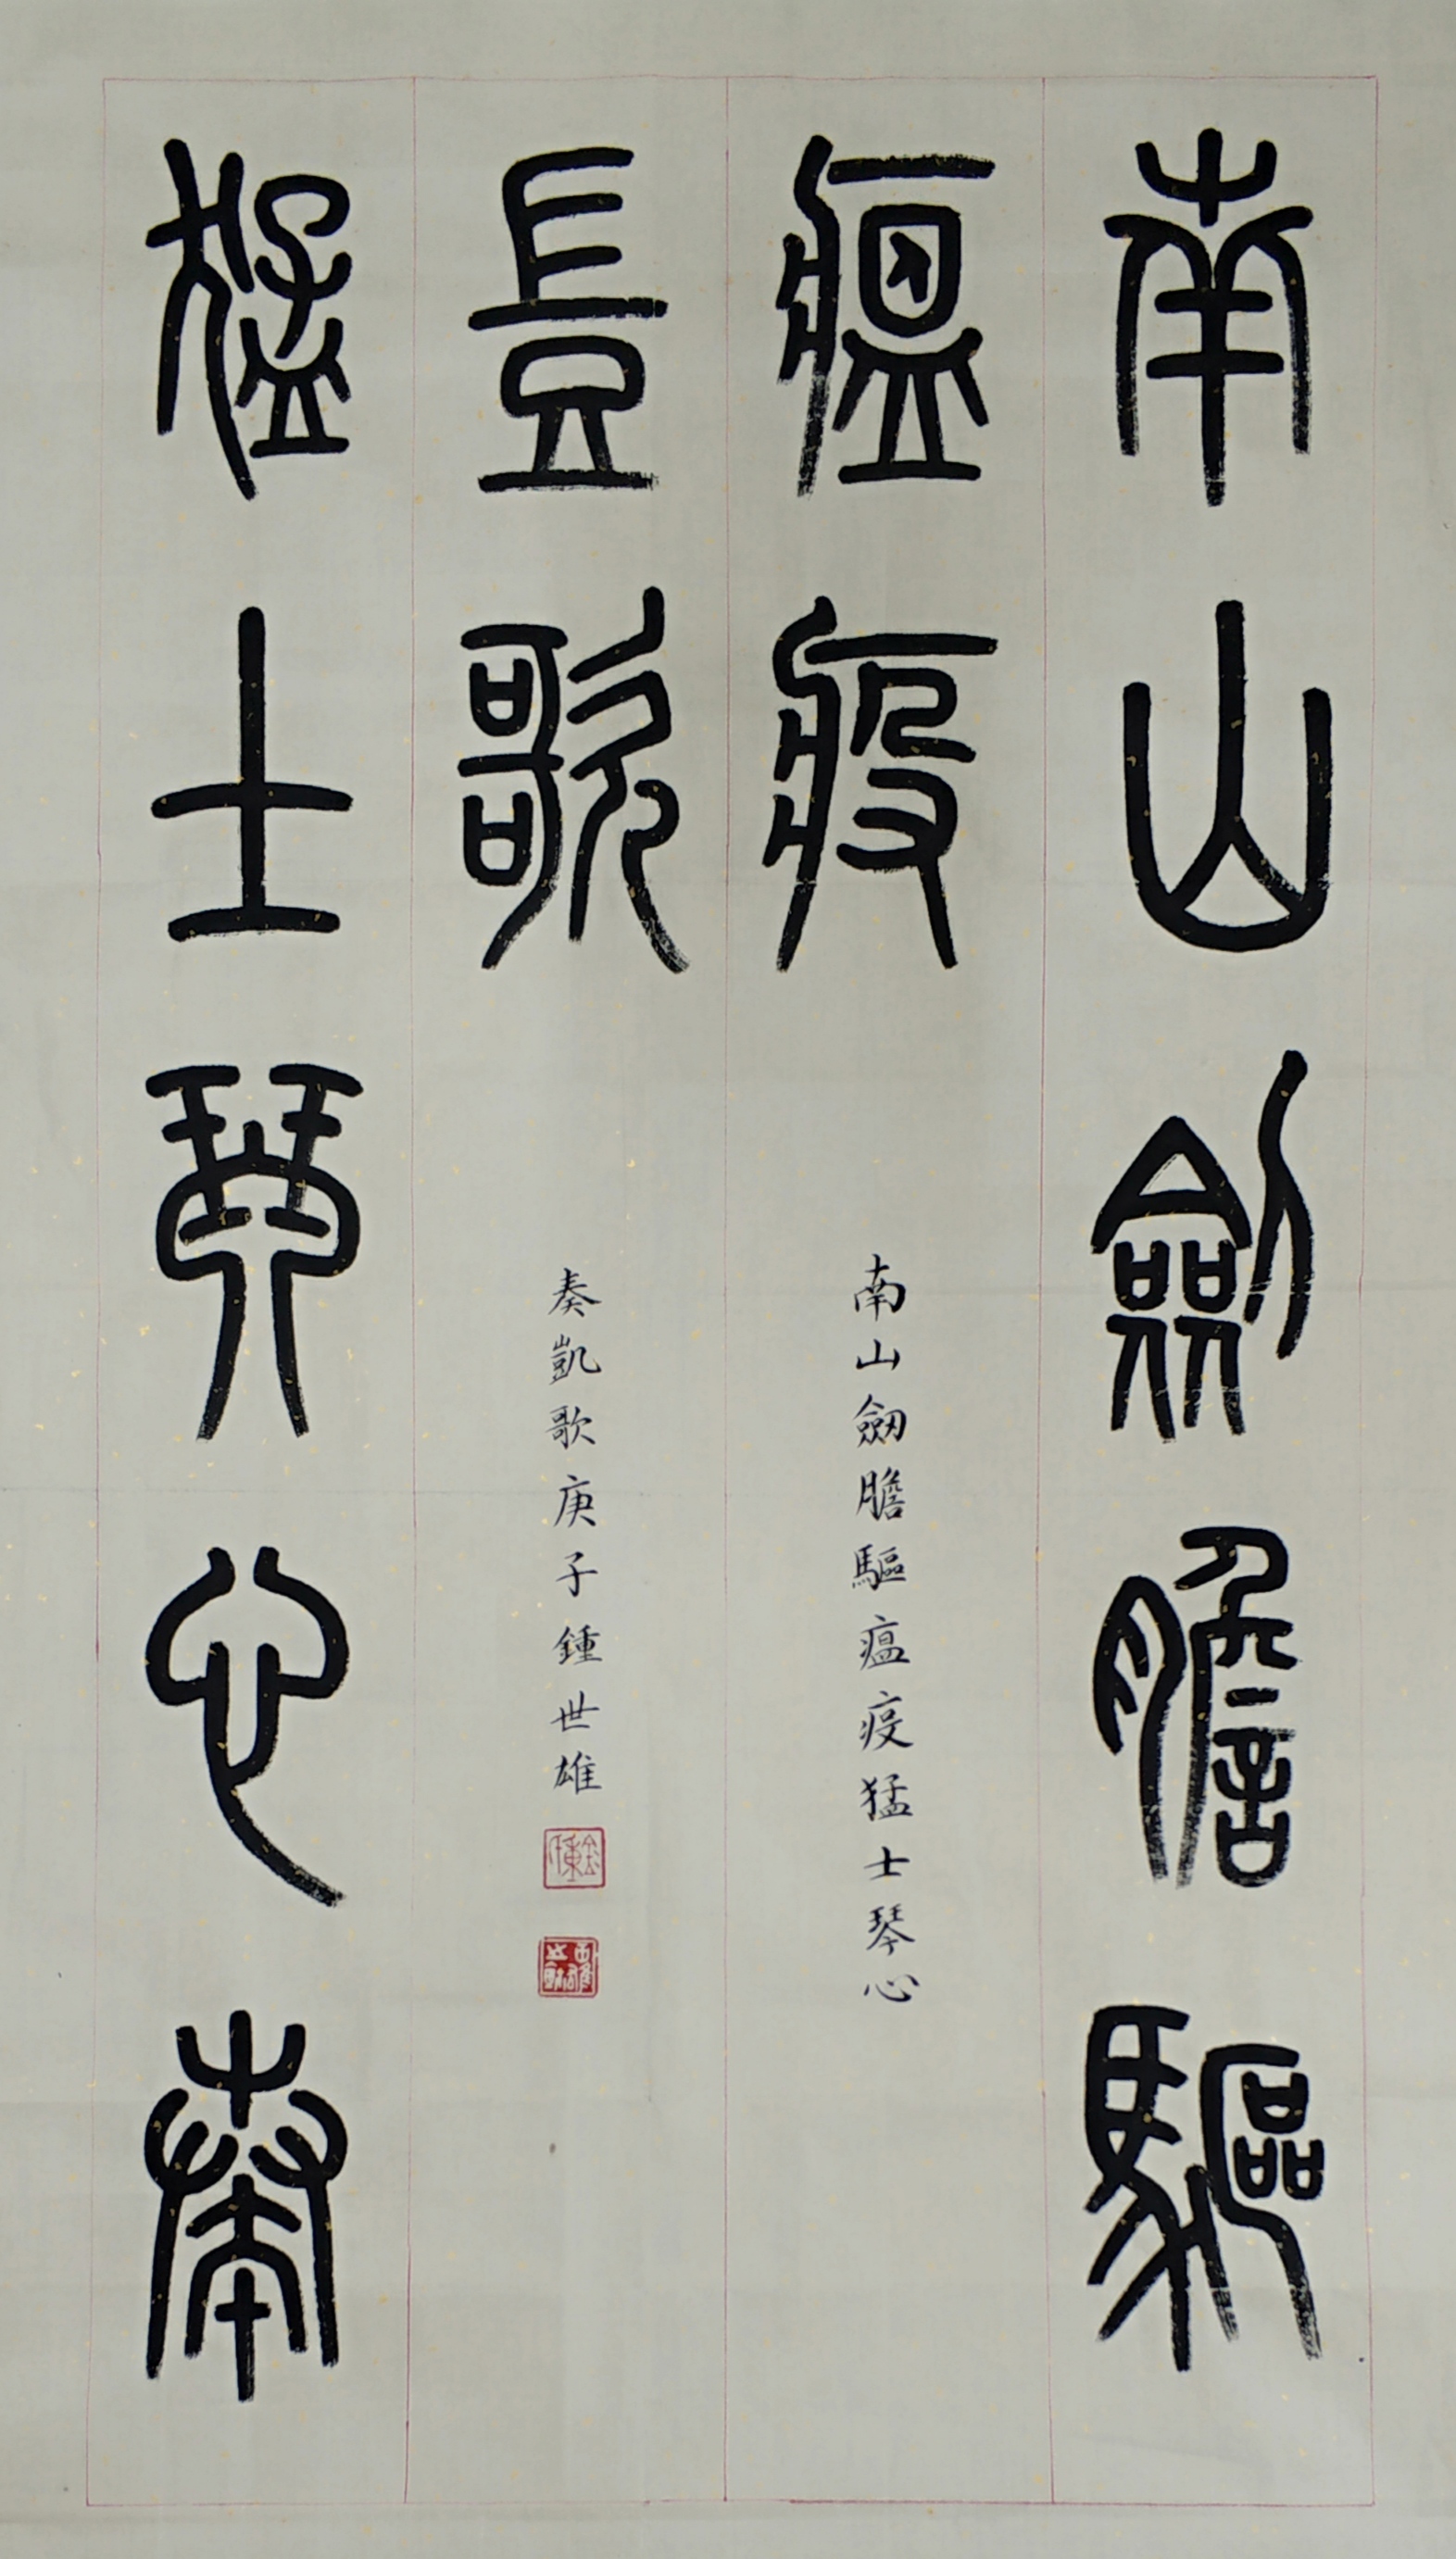 南山劒膽驅
瘟疫
猛士琴心奏
豈歌
南山劒膽驅瘟疫猛士琴心
奏凱歌庚子鍾世雄